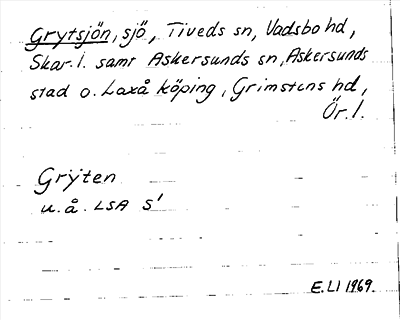 Grytsjön, sjö, Tiveds sn, Vadsbo hd,
Skar. l. samt Askersunds sn, Askersunds
stad o. Laxå köping, Grimstens hd,
Ör. l.
Grÿten
u. å. LSA S'
E. LI 1969.